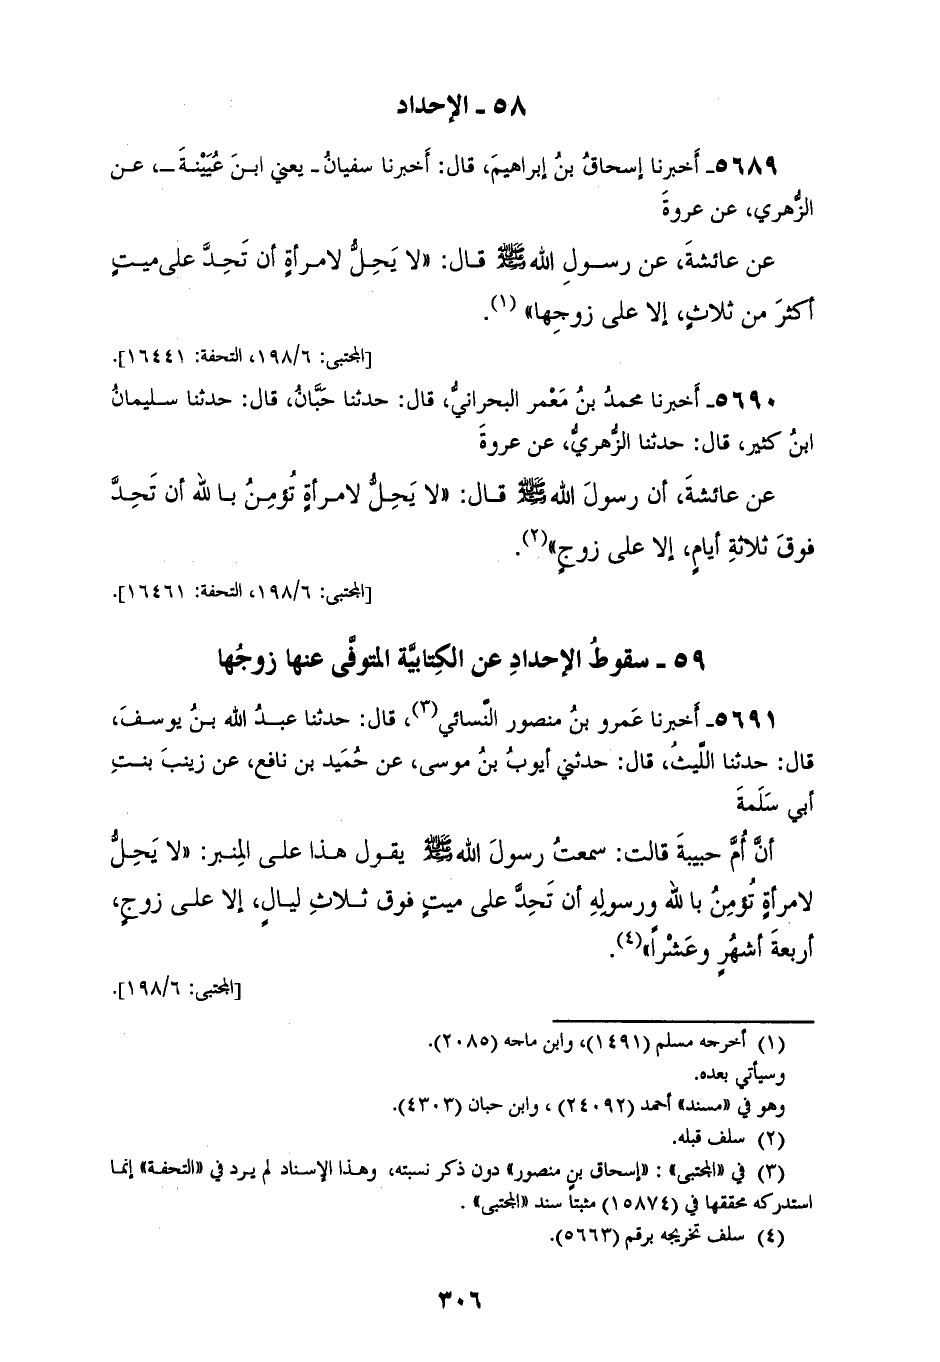 ٥٨ ـ الإحداد
٥٦٨٩ـ أَخبرنا إسحاقُ بنُ إبراهيمَ، قال: أَخبرنا سفيانُ ـ يعني ابـنَ عُيَيْنـةَ ـ، عـن
الزُّهري، عن عروةَ
عن عائشةَ، عن رسـولِ الله ﷺ قـال: «لا يَحِـلُّ لامـرأةٍ أن تَحِـدَّ على ميـتٍ
أكثرَ من ثلاثٍ، إلا على زوجِها» (١).
[المجتبى: ١٩٨/٦، التحفة: ١٦٤٤١].
٥٦٩٠ـ أَخبرنا محمدُ بنُ مَعْمر البحرانيُّ، قال: حدثنا حَبَّانُ، قال: حدثنا سـليمانُ
ابنُ كثير، قال: حدثنا الزُّهريُّ، عن عروةَ
عن عائشةَ، أن رسولَ الله ﷺ قـال: «لا يَحِـلُّ لامـرأةٍ تُؤمِـنُ بـا لله أن تَحِـدَّ
فوقَ ثلاثةِ أيامٍ، إلا على زوجٍ»(٢).
[المجتبى: ١٩٨/٦، التحفة: ١٦٤٦١].
٥٩ ـ سقوطُ الإحدادِ عن الكِتابيَّة المتوفَّى عنها زوجُها
٥٦٩١ـ أَخبرنا عَمرو بنُ منصور النَّسائي(٣)، قال: حدثنا عبـدُ الله بـنُ يوسـفَ،
قال: حدثنا اللَّيثُ، قال: حدثني أيوبُ بنُ موسى، عن حُمَيد بن نافع، عن زينبَ بنـتِ
أبي سَلَمةَ
أنَّ أُمَّ حبيبةَ قالت: سمعتُ رسولَ الله ﷺ يقـول هـذا علـى المِنـبر: «لا يَحِـلُّ
لامرأةٍ تُؤمِنُ با لله ورسولِهِ أن تَحِدَّ على ميتٍ فوق ثـلاثِ ليـالٍ، إلا علـى زوجٍ،
أربعةَ أشهُرٍ وعَشْراً»(٤).
[المجتبى: ١٩٨/٦].
(١) أخرجه مسلم (١٤٩١)، وابن ماجه (٢٠٨٥).
وسيأتي بعده.
وهو في «مسند» أحمد (٢٤٠٩٢) ، وابن حبان (٤٣٠٣).
(٢) سلف قبله.
(٣) في «المجتبى» : «إسحاق بن منصور» دون ذكر نسبته، وهـذا الإسـناد لم يـرد في «التحفـة» إنمـا
استدركه محققها في (١٥٨٧٤) مثبتاً سند «المجتبى» .
(٤) سلف تخريجه برقم (٥٦٦٣).
٣٠٦